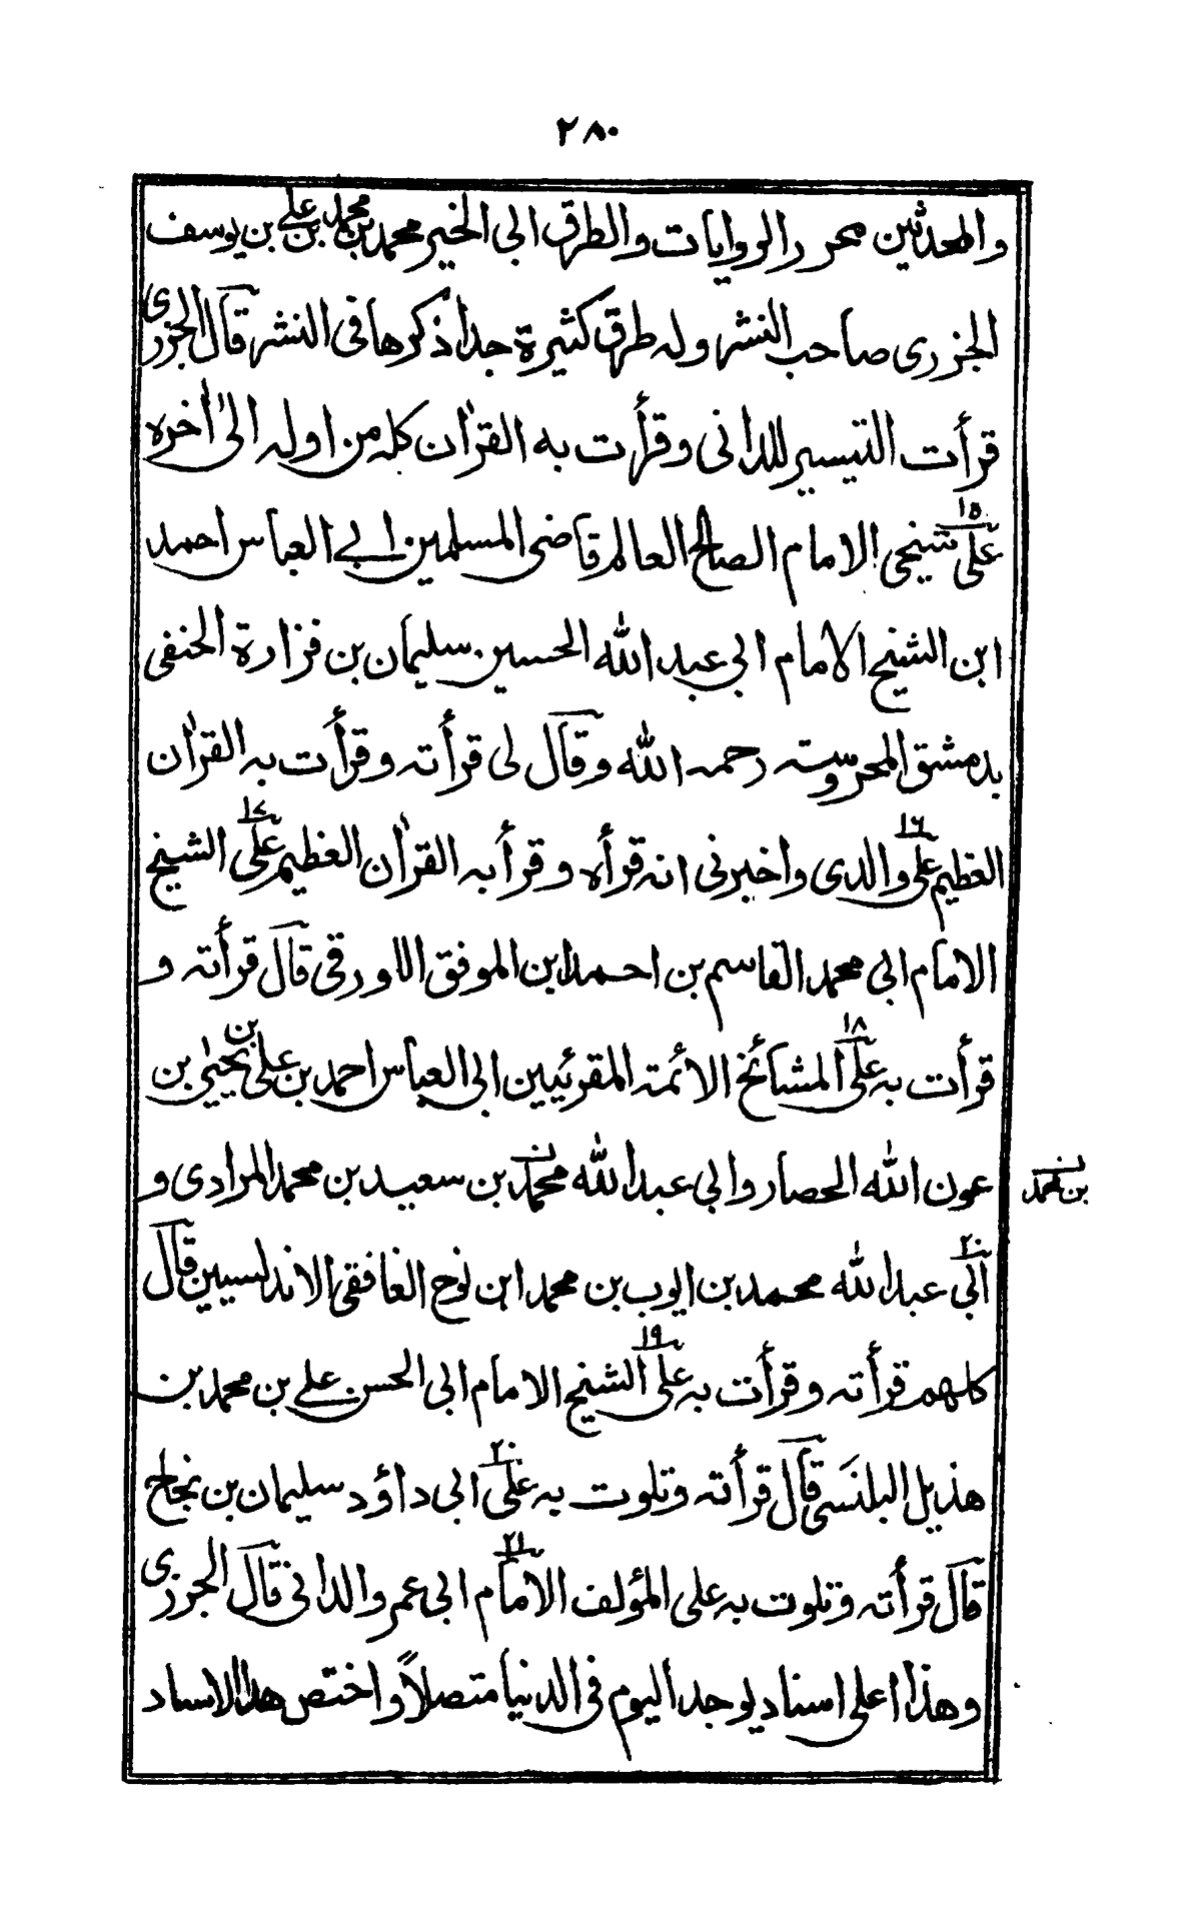 ٢٨٠
والمحدثين محرر الروايات والطرق ابى الخير محمد بن محمد بن على بن يوسف
الجزرى صاحب النشر وله طرق كثيرة جدا ذكرها فى النشر قال الجزرى
قرأت التيسير للدانى وقرأت به القراٰن كله من اوله الىٰ اٰخره
١٥
على شيخى الامام الصالح العالم قاضى المسلمين ابى العباس احمد
ابن الشيخ الامام ابى عبد الله الحسين سليمان بن فزارة الحنفى
بدمشق المحروسته رحمه الله وقال لى قرأته وقرأت به القراٰن
١٦ ١٧
العظيم على والدى واخبرنى انه قرأه وقرأ به القراٰن العظيم على الشيخ
الامام ابى محمد القاسم بن احمد ابن الموفق اللاورقى قال قرأته و
١٨
قرأت به على المشائخ الائمته المقرئيين ابى العباس احمد بن على بن يحيىٰ بن
عون الله الحصار وابى عبد الله محمد بن سعيد بن محمد المرادى و
بن محمد
٢٠
ابى عبد الله محمد بن ايوب بن محمد ابن نوح الغافقى الاندلسيين قال
١٩
كلهم قرأته وقرأت به على الشيخ الامام ابى الحسن على بن محمد بن
٢٠
هذيل البلنسى قال قرأته وتلوت به على ابى داؤد سليمان بن نجاح
٢١
قال قرأته وتلوت به على المؤلف الامام ابى عمرو الدانى قال الجزرى
وهذا اعلى اسناد يوجد اليوم فى الدنيا متصلاً واختص هذا الاسناد